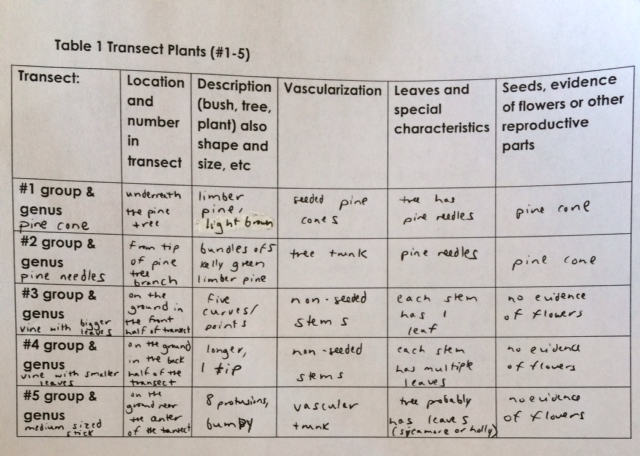 Table 1 Transect Plants (#1-5)
Transect:
Location
and
number
in
transect
Description
(bush, tree,
plant) also
shape and
size, etc
Vascularization
Leaves and
special
characteristics
Seeds, evidence
of flowers or other
reproductive
parts
#1 group &
genus
pine cone
underneath
the pine
tree
limber
pine,
light brown
seeded pine
cones
tree has
pine needles
pine cone
#2 group &
genus
pine needles
from tip
of pine
tree
branch
bundles of 5
kelly green
limber pine
tree trunk
pine needles
pine cone
#3 group &
genus
vine with bigger
leaves
on the
ground in
the front
half of transect
five
curves/
points
non-seeded
stems
each stem
has 1
leaf
no evidence
of flowers
#4 group &
genus
vine with smaller
leaves
on the ground
in the back
half of the
transect
longer,
1 tip
non-seeded
stems
each stem
has multiple
leaves
no evidence
of flowers
#5 group &
genus
medium sized
stick
on the
ground near
the center
of the transect
8 protrusions,
bumpy
vascular
trunk
tree probably
has leaves
(sycamore or holly)
no evidence
of flowers